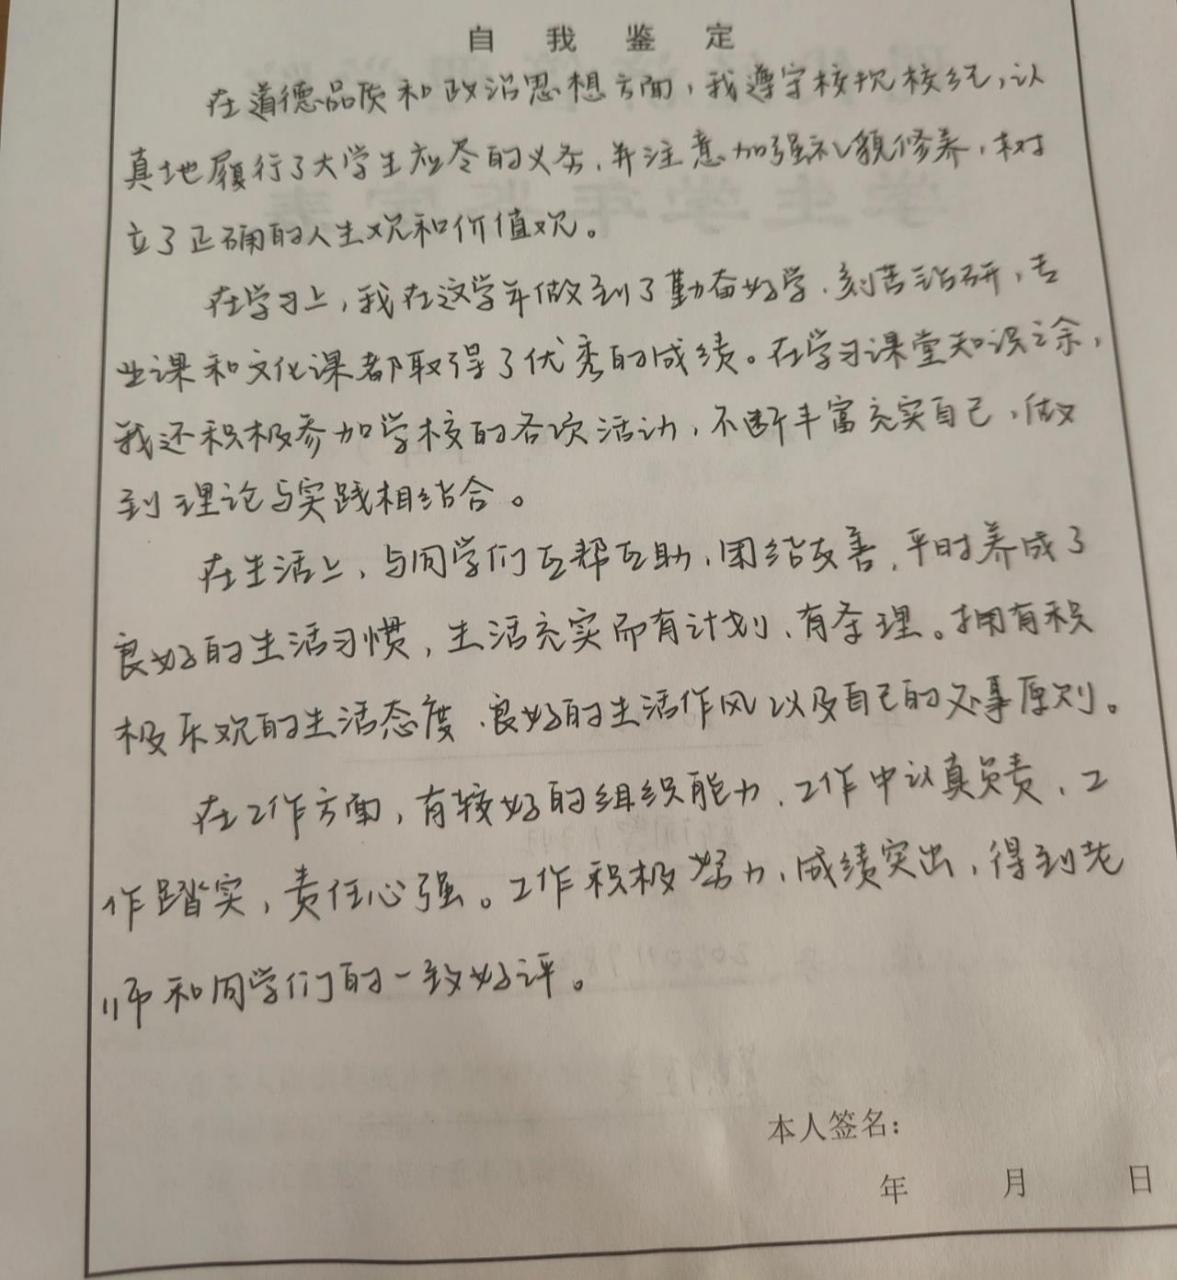 自我鉴定
在道德品质和政治思想方面，我遵守校规校纪，认
真地履行了大学生应尽的义务，并注意加强礼貌修养，树
立了正确的人生观和价值观。
在学习上，我在这学年做到了勤奋好学，刻苦钻研，专
业课和文化课都取得了优秀的成绩。在学习课堂知识之余，
我还积极参加学校的各项活动，不断丰富充实自己，做
到理论与实践相结合。
在生活上，与同学们互帮互助，团结友善，平时养成了
良好的生活习惯，生活充实而有计划、有条理。拥有积
极乐观的生活态度、良好的生活作风以及自己的处事原则。
在工作方面，有较好的组织能力，工作中认真负责，工
作踏实，责任心强。工作积极努力，成绩突出，得到老
师和同学们的一致好评。
本人签名：
年 月 日